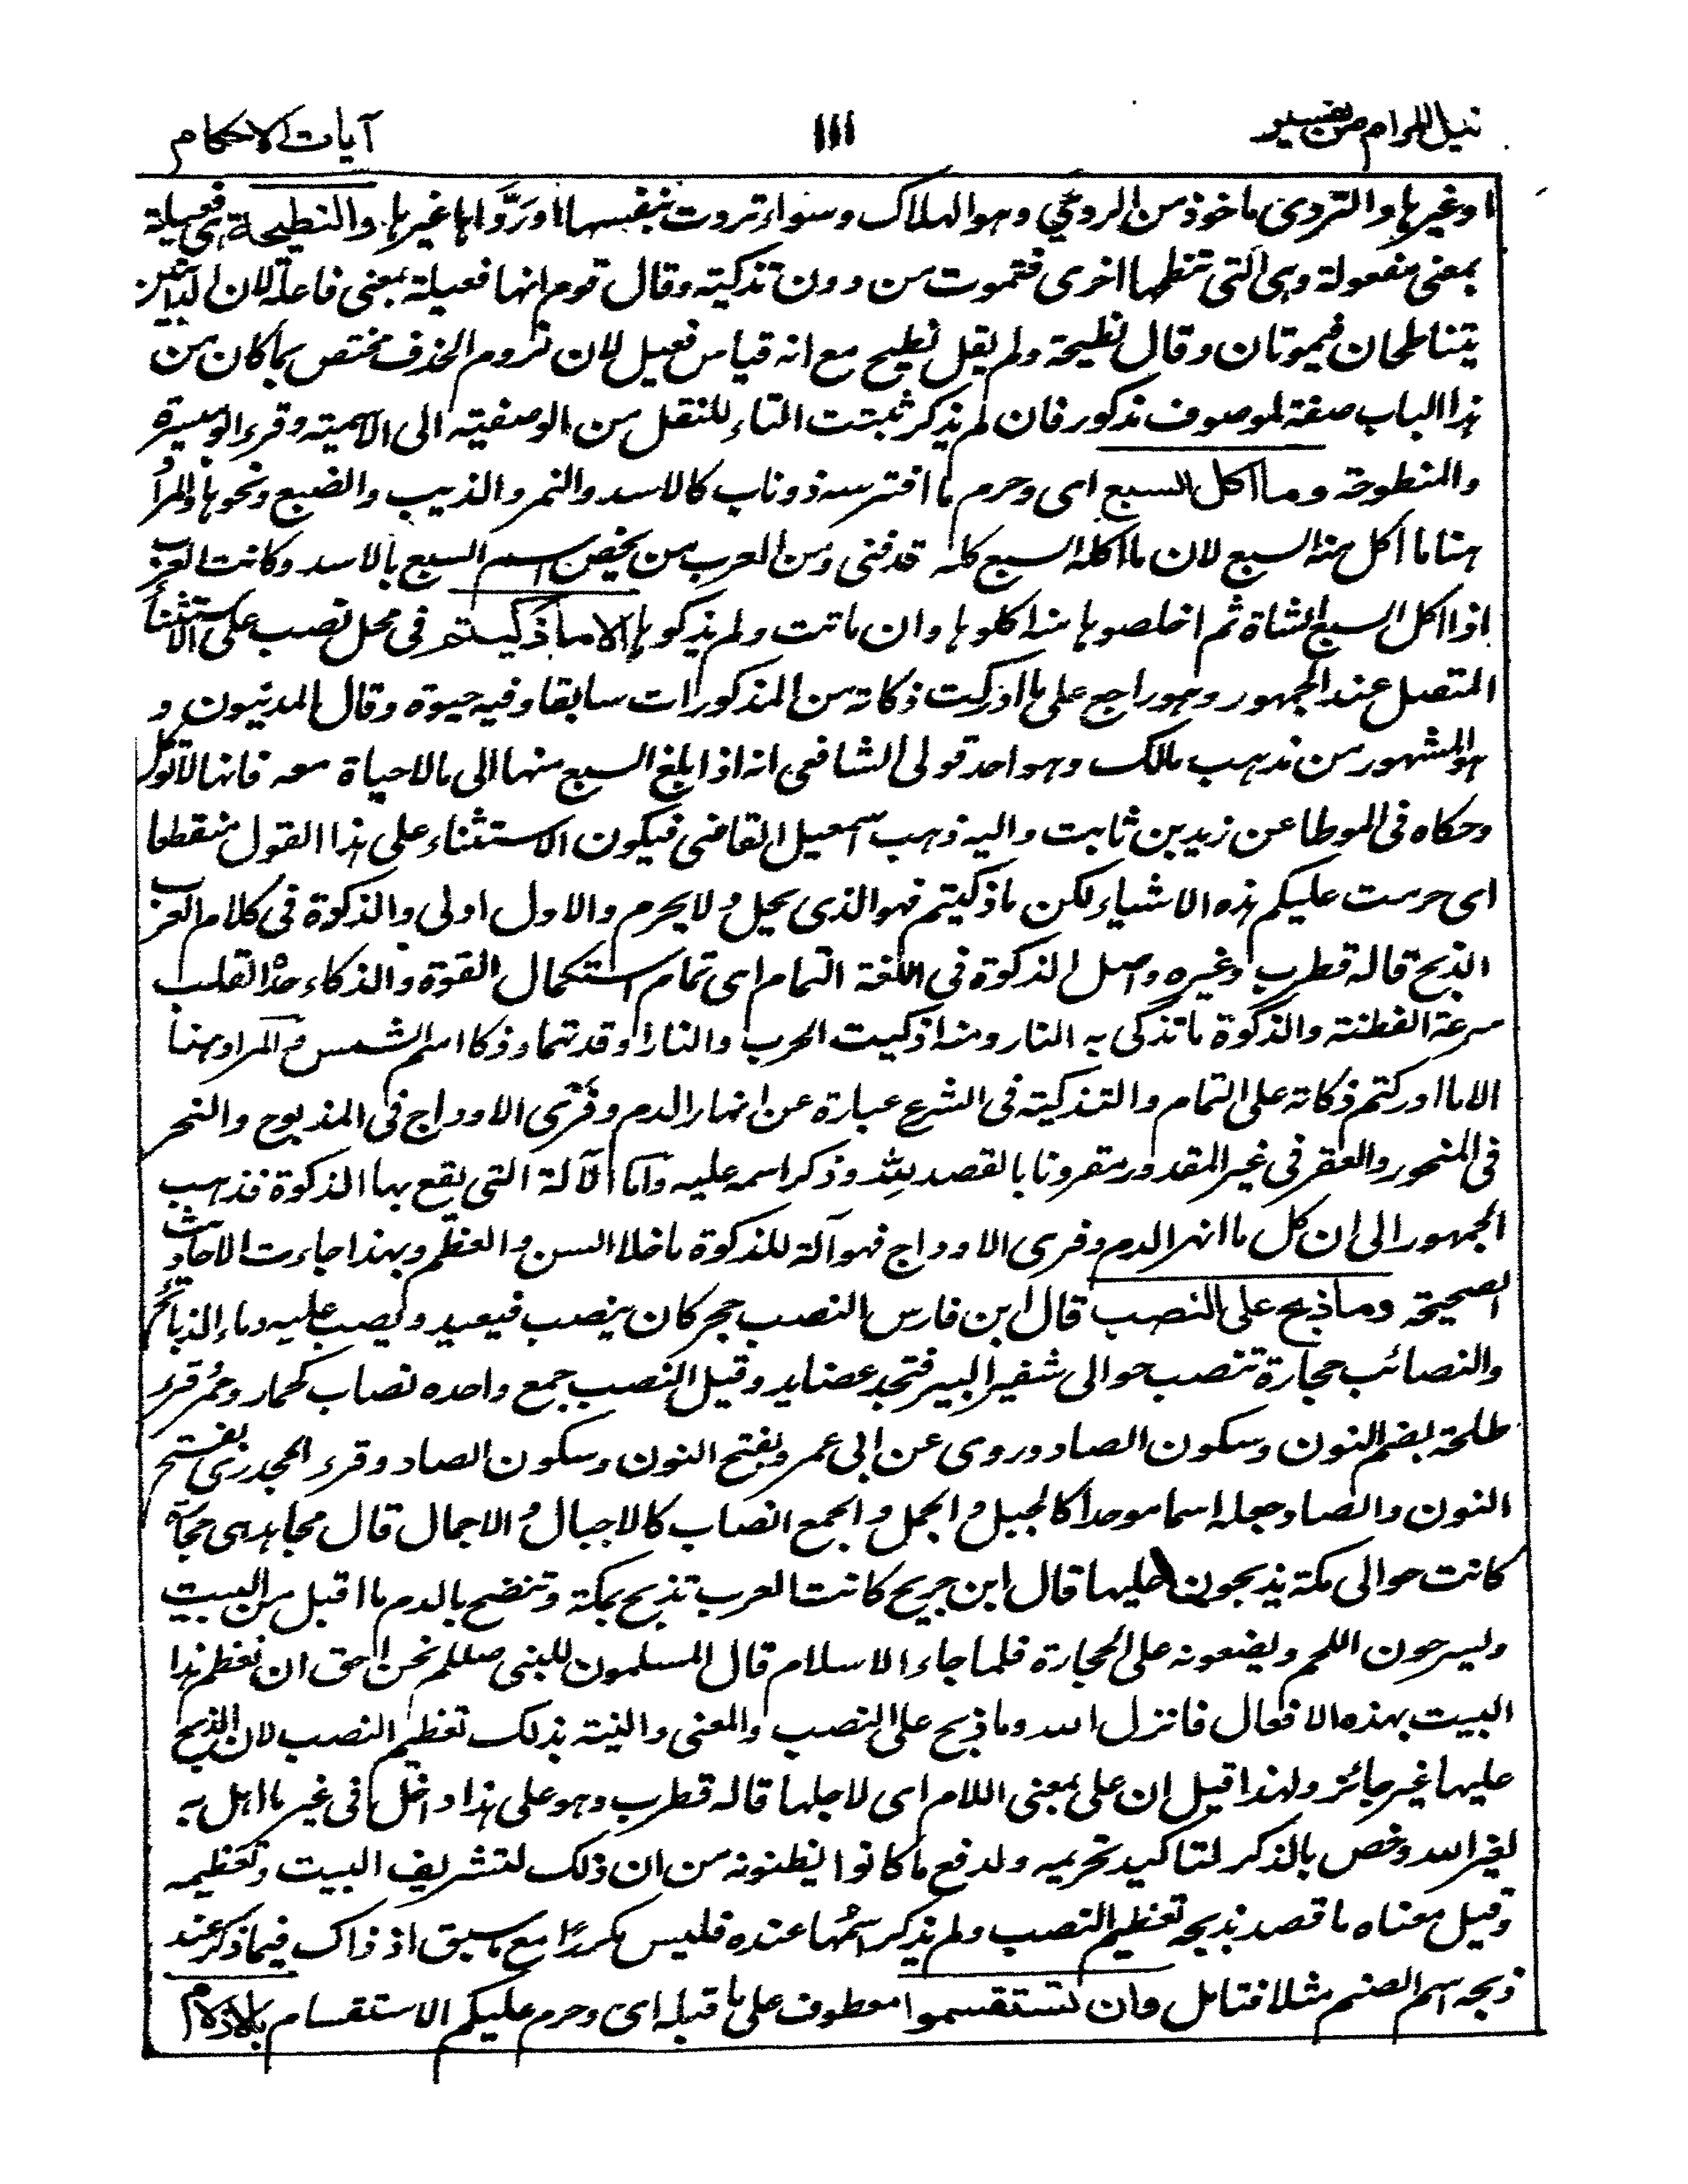 نيل المرام من تفسير
١١١
آيات الاحكام
او غيرها والتردى ماخوذ من الردى وهو الهلاك وسواء تردت بنفسها او ردّاها غيرها والنطيحة هى فعيلة
بمعنى مفعولة وهى التى تنطحها اخرى فتموت من دون تذكية وقال قوم انها فعيلة بمعنى فاعلة لان
يتناطحان فيموتان وقال نطيحة ولم يقل نطيح مع انه قياس فعيل لان لزوم الحذف مختص بما كان من
هذا الباب صفة لموصوف مذكور فان لم يذكر ثبتت التاء للنقل من الوصفية الى الاسمية وقرء ابو ميسرة
والمنطوحة وما اكل السبع اى وحرم ما افترسه ذو ناب كالاسد والنمر والذيب والضبع ونحوها والمراد
هنا ما اكل منه السبع لان ما اكله السبع كله قد فنى ومن العرب من يخص اسم السبع بالاسد وكانت العرب
اذا اكل السبع الشاة ثم اخلصوها منه اكلوها وان ماتت ولم يذكوها الا ما ذكيتم فى محل نصب على الاستثناء
المتصل عند الجمهور وهو راجع على ما ادركت ذكاته من المذكورات سابقا وفيه حيوة وقال المدنيون و
هو المشهور من مذهب مالك وهو احد قولى الشافعى انه اذا بلغ السبع منها الى ما لا حياة معه فانها لا توكل
وحكاه فى الموطا عن زيد بن ثابت واليه ذهب اسمعيل القاضى فيكون الاستثناء على هذا القول منقطعا
اى حرمت عليكم هذه الاشياء لكن ما ذكيتم فهو الذى يحل ولا يحرم والاول اولى والذكوة فى كلام العرب
الذبح قاله قطرب وغيره واصل الذكوة فى اللغة التمام اى تمام استكمال القوة والذكاء حدة القلب
سرعة الفطنة والذكوة ما تذكى به النار ومنه اذكيت الحرب والنار اوقدتهما وذكا اسم الشمس والمراد هنا
الا ما ادركتم ذكاته على التمام والتذكية فى الشرع عبارة عن انهار الدم وفرى الاوداج فى المذبوح والنحر
فى المنحور والعقر فى غير المقدور مقرونا بالقصد لله وذكر اسمه عليه واما الآلة التى يقع بها الذكوة فذهب
الجمهور الى ان كل ما انهر الدم وفرى الاوداج فهو آلة للذكوة ما خلا السن والعظم وبهذا جاءت الاحاديث
الصحيحة وما ذبح على النصب قال ابن فارس النصب حجر كان ينصب فيعبد ويصب عليه دماء الذبائح
والنصائب حجارة تنصب حوالى شفير البير فتجد عضايد وقيل النصب جمع واحده نصاب كحمار وحمر قرء
طلحة بضم النون وسكون الصاد وروى عن ابى عمر وبفتح النون وسكون الصاد وقرء الجحدرى بفتح
النون والصاد جعله اسما موحدا كالجبل والجمل والجمع انصاب كالاجبال والاجمال قال مجاهد هى حجارة
كانت حوالى مكة يذبحون عليها قال ابن جريج كانت العرب تذبح بمكة وتنضح بالدم ما اقبل من البيت
ويسرحون اللحم ويضعونه على الحجارة فلما جاء الاسلام قال المسلمون للنبى صللم نحن احق ان نعظم هذا
البيت بهذه الافعال فانزل الله وما ذبح على النصب والمعنى والنية بذلك تعظيم النصب لان الذبح
عليها غير جائز ولهذا قيل ان على بمعنى اللام اى لاجلها قاله قطرب وهو على هذا داخل فى غير ما اهل به
لغير الله وخص بالذكر لتاكيد تحريمه ولدفع ما كانوا يظنونه من ان ذلك لتشريف البيت وتعظيمه
وقيل معناه ما قصد بذبحه تعظيم النصب ولم يذكر اسمها عنده فليس مكررا مع ما سبق اذ ذاك فيما ذكر عند
ذبحه اسم الصنم مثلا فتامل وان تستقسموا معطوف على ما قبله اى وحرم عليكم الاستقسام بالازلام